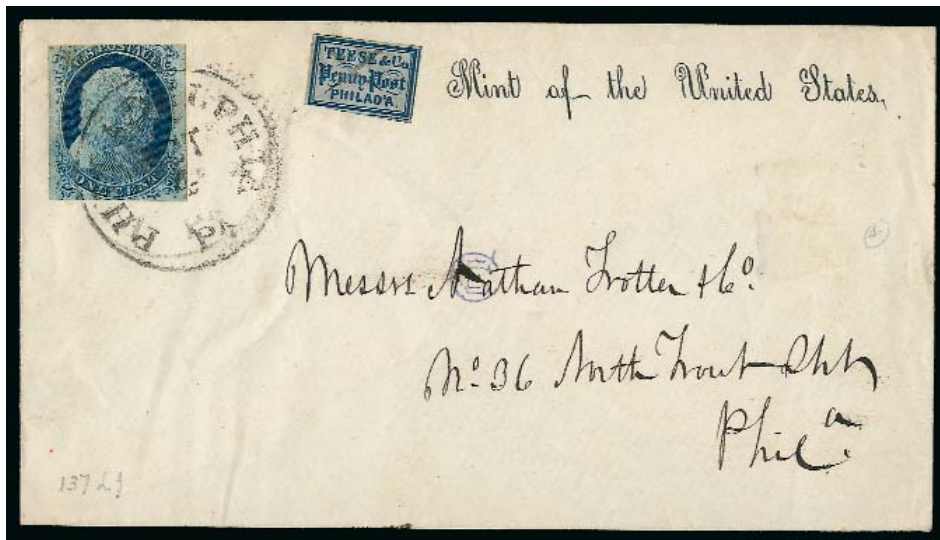 U.S. POSTAGE
ONE CENT
PHILADELPHIA Pa
TEESE & Co.
Penny Post
PHILAD'A
Mint of the United States.
Messrs Nathan Trotter & Co.
No. 36 North Front Street
Phila.
137L1